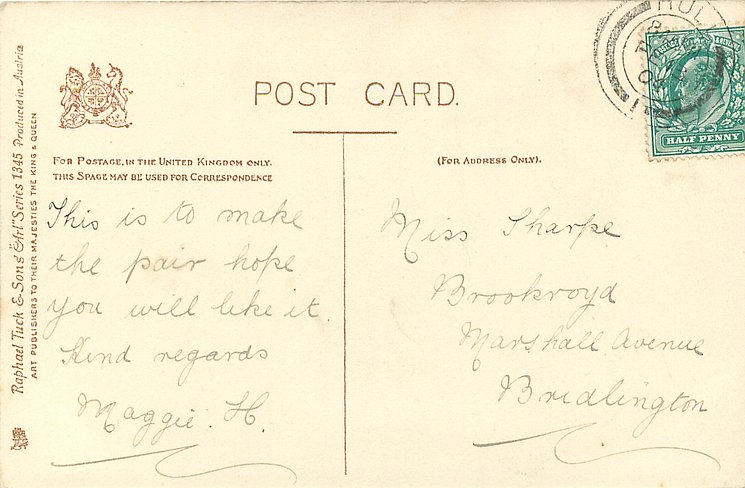 POST CARD.
Raphael Tuck & Sons' "Art" Series 1345 Produced in Austria
ART PUBLISHERS TO THEIR MAJESTIES THE KING & QUEEN
FOR POSTAGE, IN THE UNITED KINGDOM ONLY.
THIS SPACE MAY BE USED FOR CORRESPONDENCE
This is to make
the pair hope
you will like it
Kind regards
Maggie. H.
(FOR ADDRESS ONLY).
Miss Sharpe
Brookroyd
Marshall Avenue
Bridlington
HUL
HALF PENNY